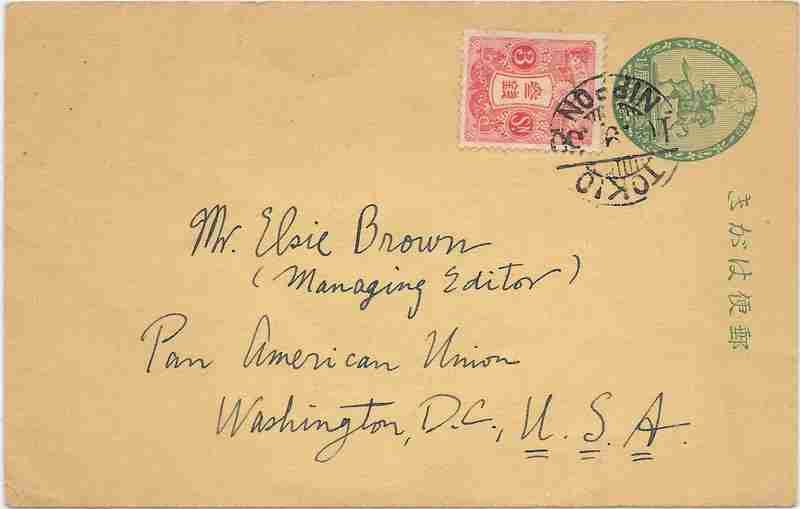 3
叁
錢
Sn
NIPPON
TOKIO
Mr. Elsie Brown
(Managing Editor)
Pan American Union
Washington, D.C., U.S.A.
郵便はがき